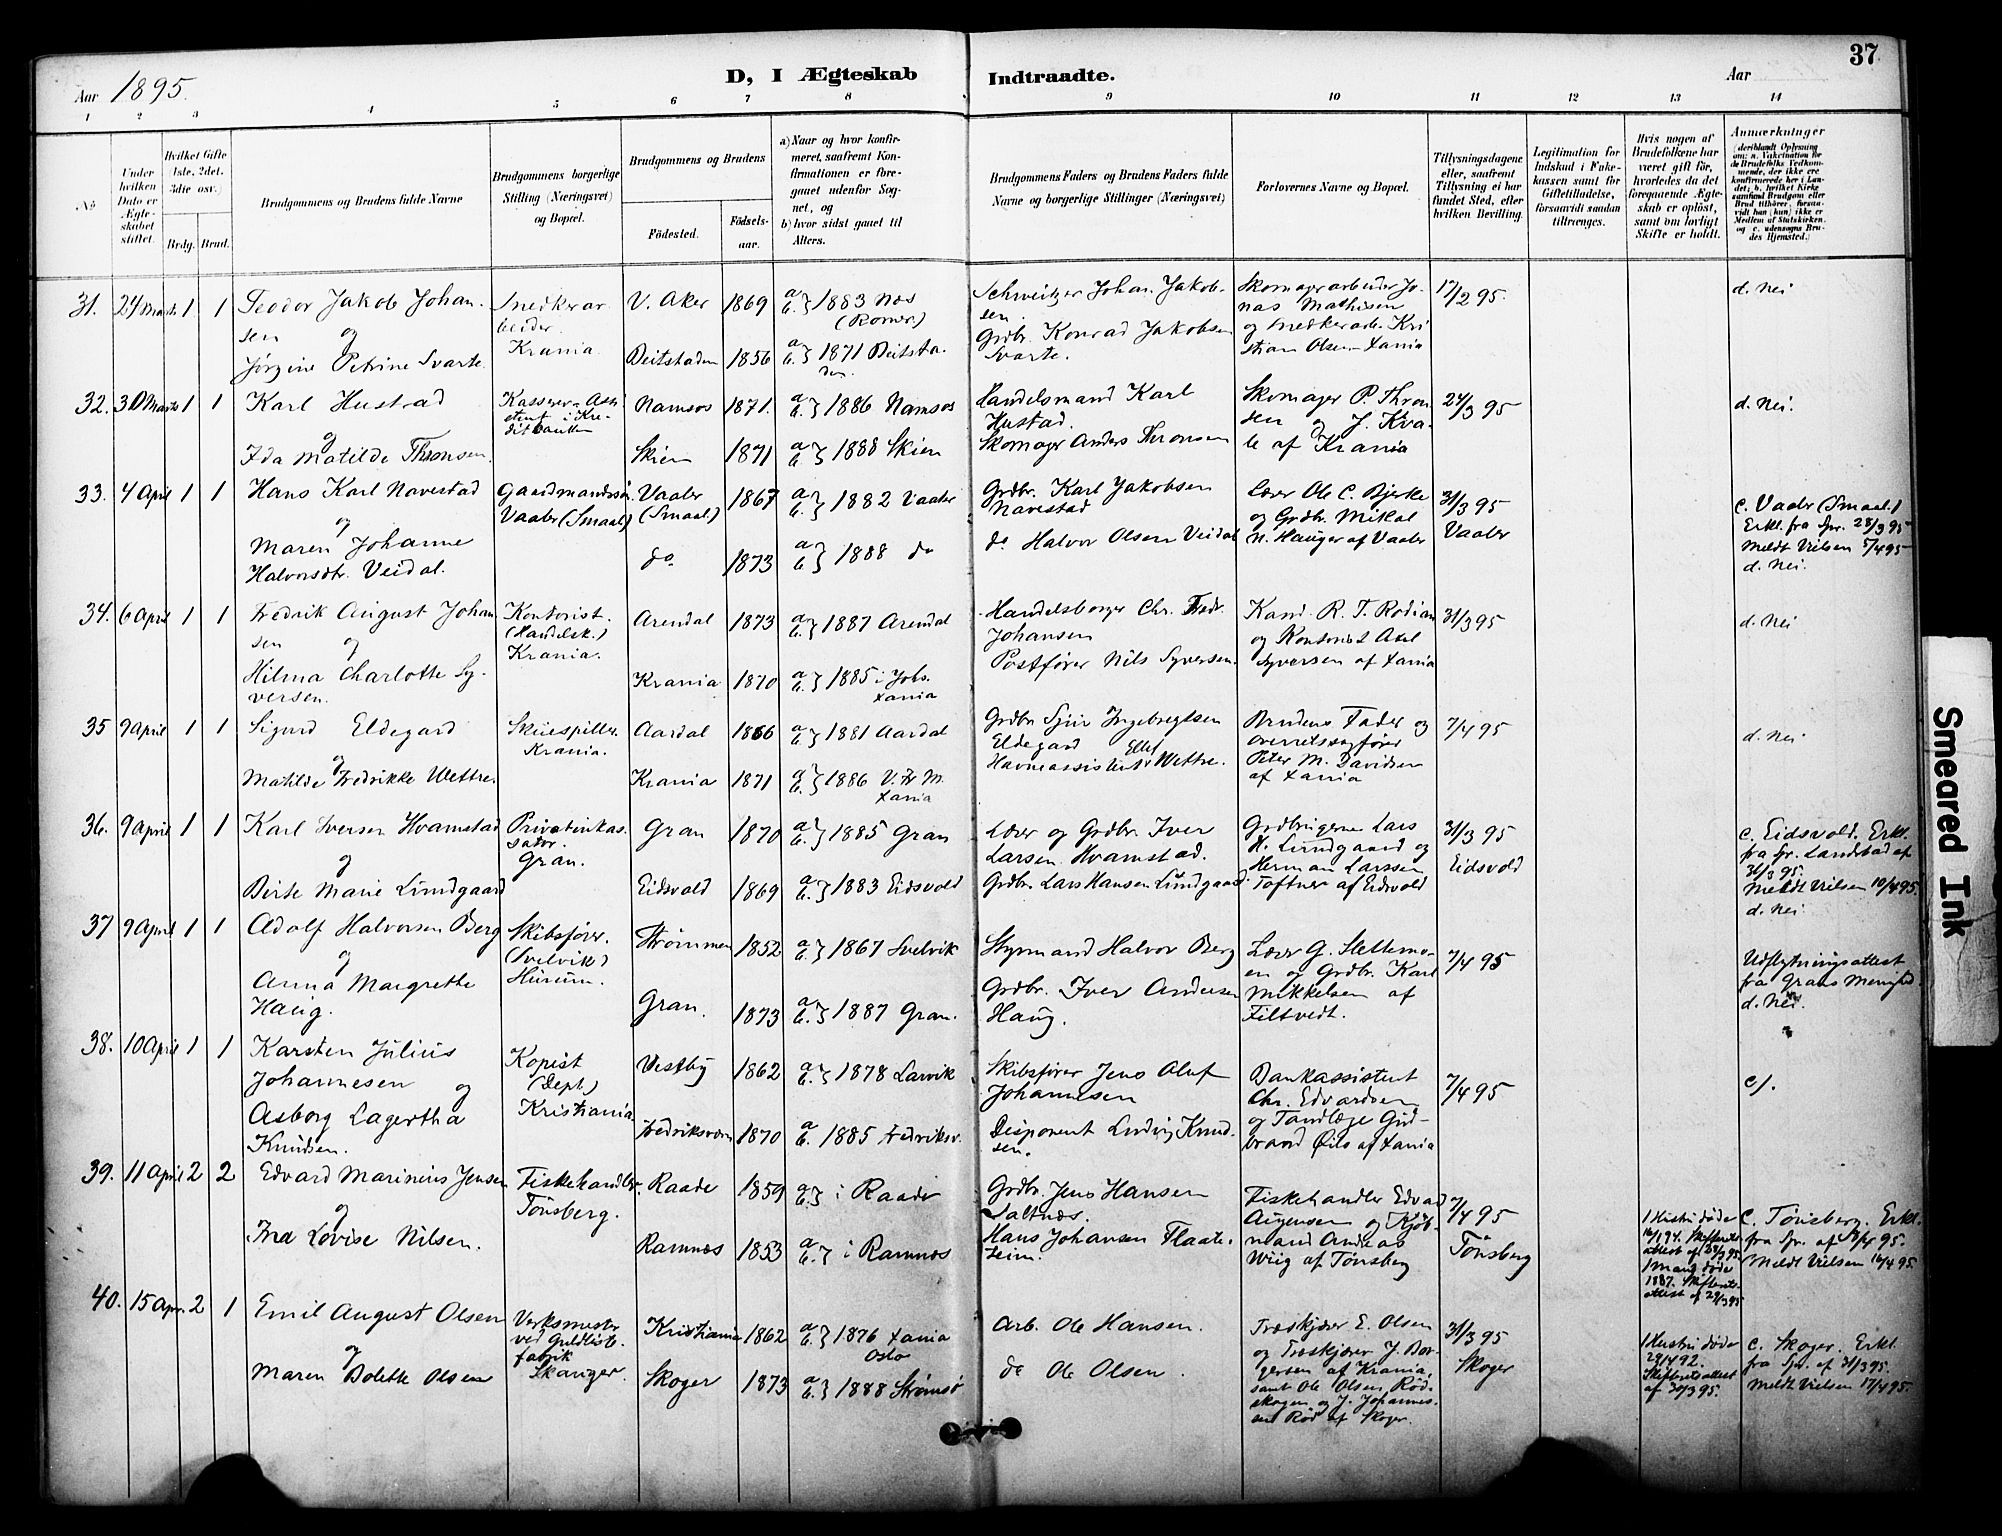 37
Aar 1895.
D, I Ægteskab Indtraadte.
Aar
1 2 3 4 5 6 7 8 9 10 11 12 13 14
No
Under hvilken Dato er Ægteskabet stiftet.
Hvilket Gifte 1ste, 2det, 3die osv.)
Brdg. Brud.
Brudgommens og Brudens fulde Navne
Brudgommens borgerlige Stilling (Næringsvei) og Bopæl.
Brudgommens og Brudens
Fødested. Fødselsaar.
a) Naar og hvor konfirmeret, saafremt Konfirmationen er foregaaet udenfor Sognet, og
b) hvor sidst gaaet til Alters.
Brudgommens Faders og Brudens Faders fulde Navne og borgerlige Stillinger (Næringsvei)
Forlovernes Navne og Bopæl.
Tillysningsdagene eller, saafremt Tillysning ei har fundet Sted, efter hvilken Bevilling.
Legitimation for Indskud i Enkekassen samt for Giftetilladelse, forsaavidt saadan tiltrænges.
Hvis nogen af Brudefolkene har været gift før, hvorledes da det foregaaende Ægteskab er opløst, samt om lovligt Skifte er holdt.
Anmærkninger
31. 24 Marts 1 1 Teodor Jakob Johansen og Snedkerarbeider Krania. V. Aker 1869 a b } 1883 Næs (Romer.) Schweitzer Johan Jakobsen. Skomagerarbeider Jonas Mathisen 17/2 95. d. Nei
Jørgine Petrine Svarte. Beitstaden 1856 a b } 1871 Beitstaden. Grdbr. Konrad Jakobsen Svarte. og Snedkerarb. Kristian Olsen Xania
32. 30 Marts 1 1 Karl Hustad og Kasserer-Assistent i Kreditbanken Namsos 1871. a b } 1886 Namsos Handelsmand Karl Hustad. Skomager P. Thronsen og J. Kvale af Krania 24/3 95 d. Nei.
Ida Matilde Thronsen. Skien 1871 a b } 1888 Skien Skomager Anders Thronsen
33. 4 April 1 1 Hans Karl Navestad og Gaardmandssøn. Vaaler (Smaal) Vaaler (Smaal) 1867 a b } 1882 Vaaler Grdbr. Karl Jakobsen Navestad Lærer Ole C. Bjerke og Grdbr. Mikal N. Hauger af Vaaler 31/3 95 Vaaler c. Vaaler (Smaal.) Erkl. fra Spr. 28/3 95 Meldt Vielsen 5/4 95 d. Nei.
Maren Johanne Halvorsdtr. Veidal. do 1873 a b } 1888 do do Halvor Olsen Veidal
34. 6 April 1 1 Fredrik August Johansen og Kontorist. (Handelsk.) Krania. Arendal 1873 a b } 1887 Arendal Handelsborger Chr. Fredr. Johansen Kand. R. T. Rodian og Kontorist Axel Syversen af Xania 31/3 95 d. Nei
Hilma Charlotte Syversen. Krania 1870 a b } 1885 i Johs. Xania Postfører Nils Syversen.
35 9 April 1 1 Sigurd Eldegard og Skuespiller. Krania. Aardal 1866 a b } 1881 Aardal Grdbr Sjur Ingebregtsen Eldegard Brudens Fader og Overretssagfører Peter M. Davidsen af Xania 7/4 95 d. Nei
Matilde Fredrikke Wettre. Krania 1871 a b } 1886 V. Fr. M. Xania Havneassistent Ellef Wettre.
36. 9 April 1 1 Karl Iversen Hvamstad og Privatinkassator. Gran. Gran 1870 a b } 1885 Gran Lærer og Grdbr. Iver Larsen Hvamstad. Grdbrugerne Lars H. Lundgaard og Herman Larssen Toftner af Eidsvold 31/3 95 Eidsvold c. Eidsvold. Erkl. fra Spr. Landstad af 31/3 95. Meldt Vielsen 10/4 95. d. Nei
Berte Marie Lundgaard Eidsvold 1869 a b } 1883 Eidsvold Grdbr. Lars Hansen Lundgaard.
37 9 April 1 1 Adolf Halvorsen Berg og Skibsfører. (Svelvik) Hurum. Strømmen 1852 a b } 1867 Svelvik Styrmand Halvor Berg Lærer G. Slettemoen og Grdbr. Karl Mikkelsen af Filtvedt. 7/4 95 Udflytningsattest fra Grans Menighed. d. Nei.
Anna Margrethe Haug. Gran. 1873 a b } 1887 Gran. Grdbr. Iver Andersen Haug.
38. 10 April 1 1 Karsten Julius Johannesen og Kopist (Dept.) Kristiania Vestby 1862 a b } 1878 Larvik Skibsfører Jens Oluf Johannesen Bankassistent Chr. Edvardsen og Tandlæge Gudbrand Øilo af Xania 7/4 95 c/.
Asborg Lagertha Knudsen. Fredriksværn 1870 a b. 1885 Fredriksv. Disponent Ludvig Knudsen.
39. 11 April 2 2 Edvard Marinius Jensen og Fiskehandler. Tønsberg. Raade 1859 a b } i Raade Grdbr. Jens Hansen Saltnæs. Fiskehandler Edvard Augensen og Kjøbmand Andreas Wiig af Tønsberg 7/4 95 Tønsberg 1 Hustru døde attest af 1 Mand døde 1887. Skifteretsattest af 29/3 95 c. Tønsberg. Erkl. fra Spr. af 95. Meldt Vielsen 16/4 95.
Lovise Nilsen. Ramnæs 1853 a b } i Ramnæs Hans Johansen
40. 15 Apr. 2 1 Emil August Olsen og Verksmester ved Guldlistefabrik Skauger. Kristiania 1862 a b } 1876 Xania Oslo Arb. Ole Hansen. Træskjærer E. Olsen og Træskjærer J. Borgersen af Krania, samt Ole Olsen Rødskogen og J. Johannessen Rød af Skoger. 31/3 95 Skoger 1 Hustru døde 29/4 92. Skifteretsattest af 30/3 95. c. Skoger. Erkl. fra Spr. af 31/3 95. Meldt Vielsen 17/4 95.
Maren Bolette Olsen Skoger 1873 a b } 1888 Strømsø do Ole Olsen.
Smeared Ink